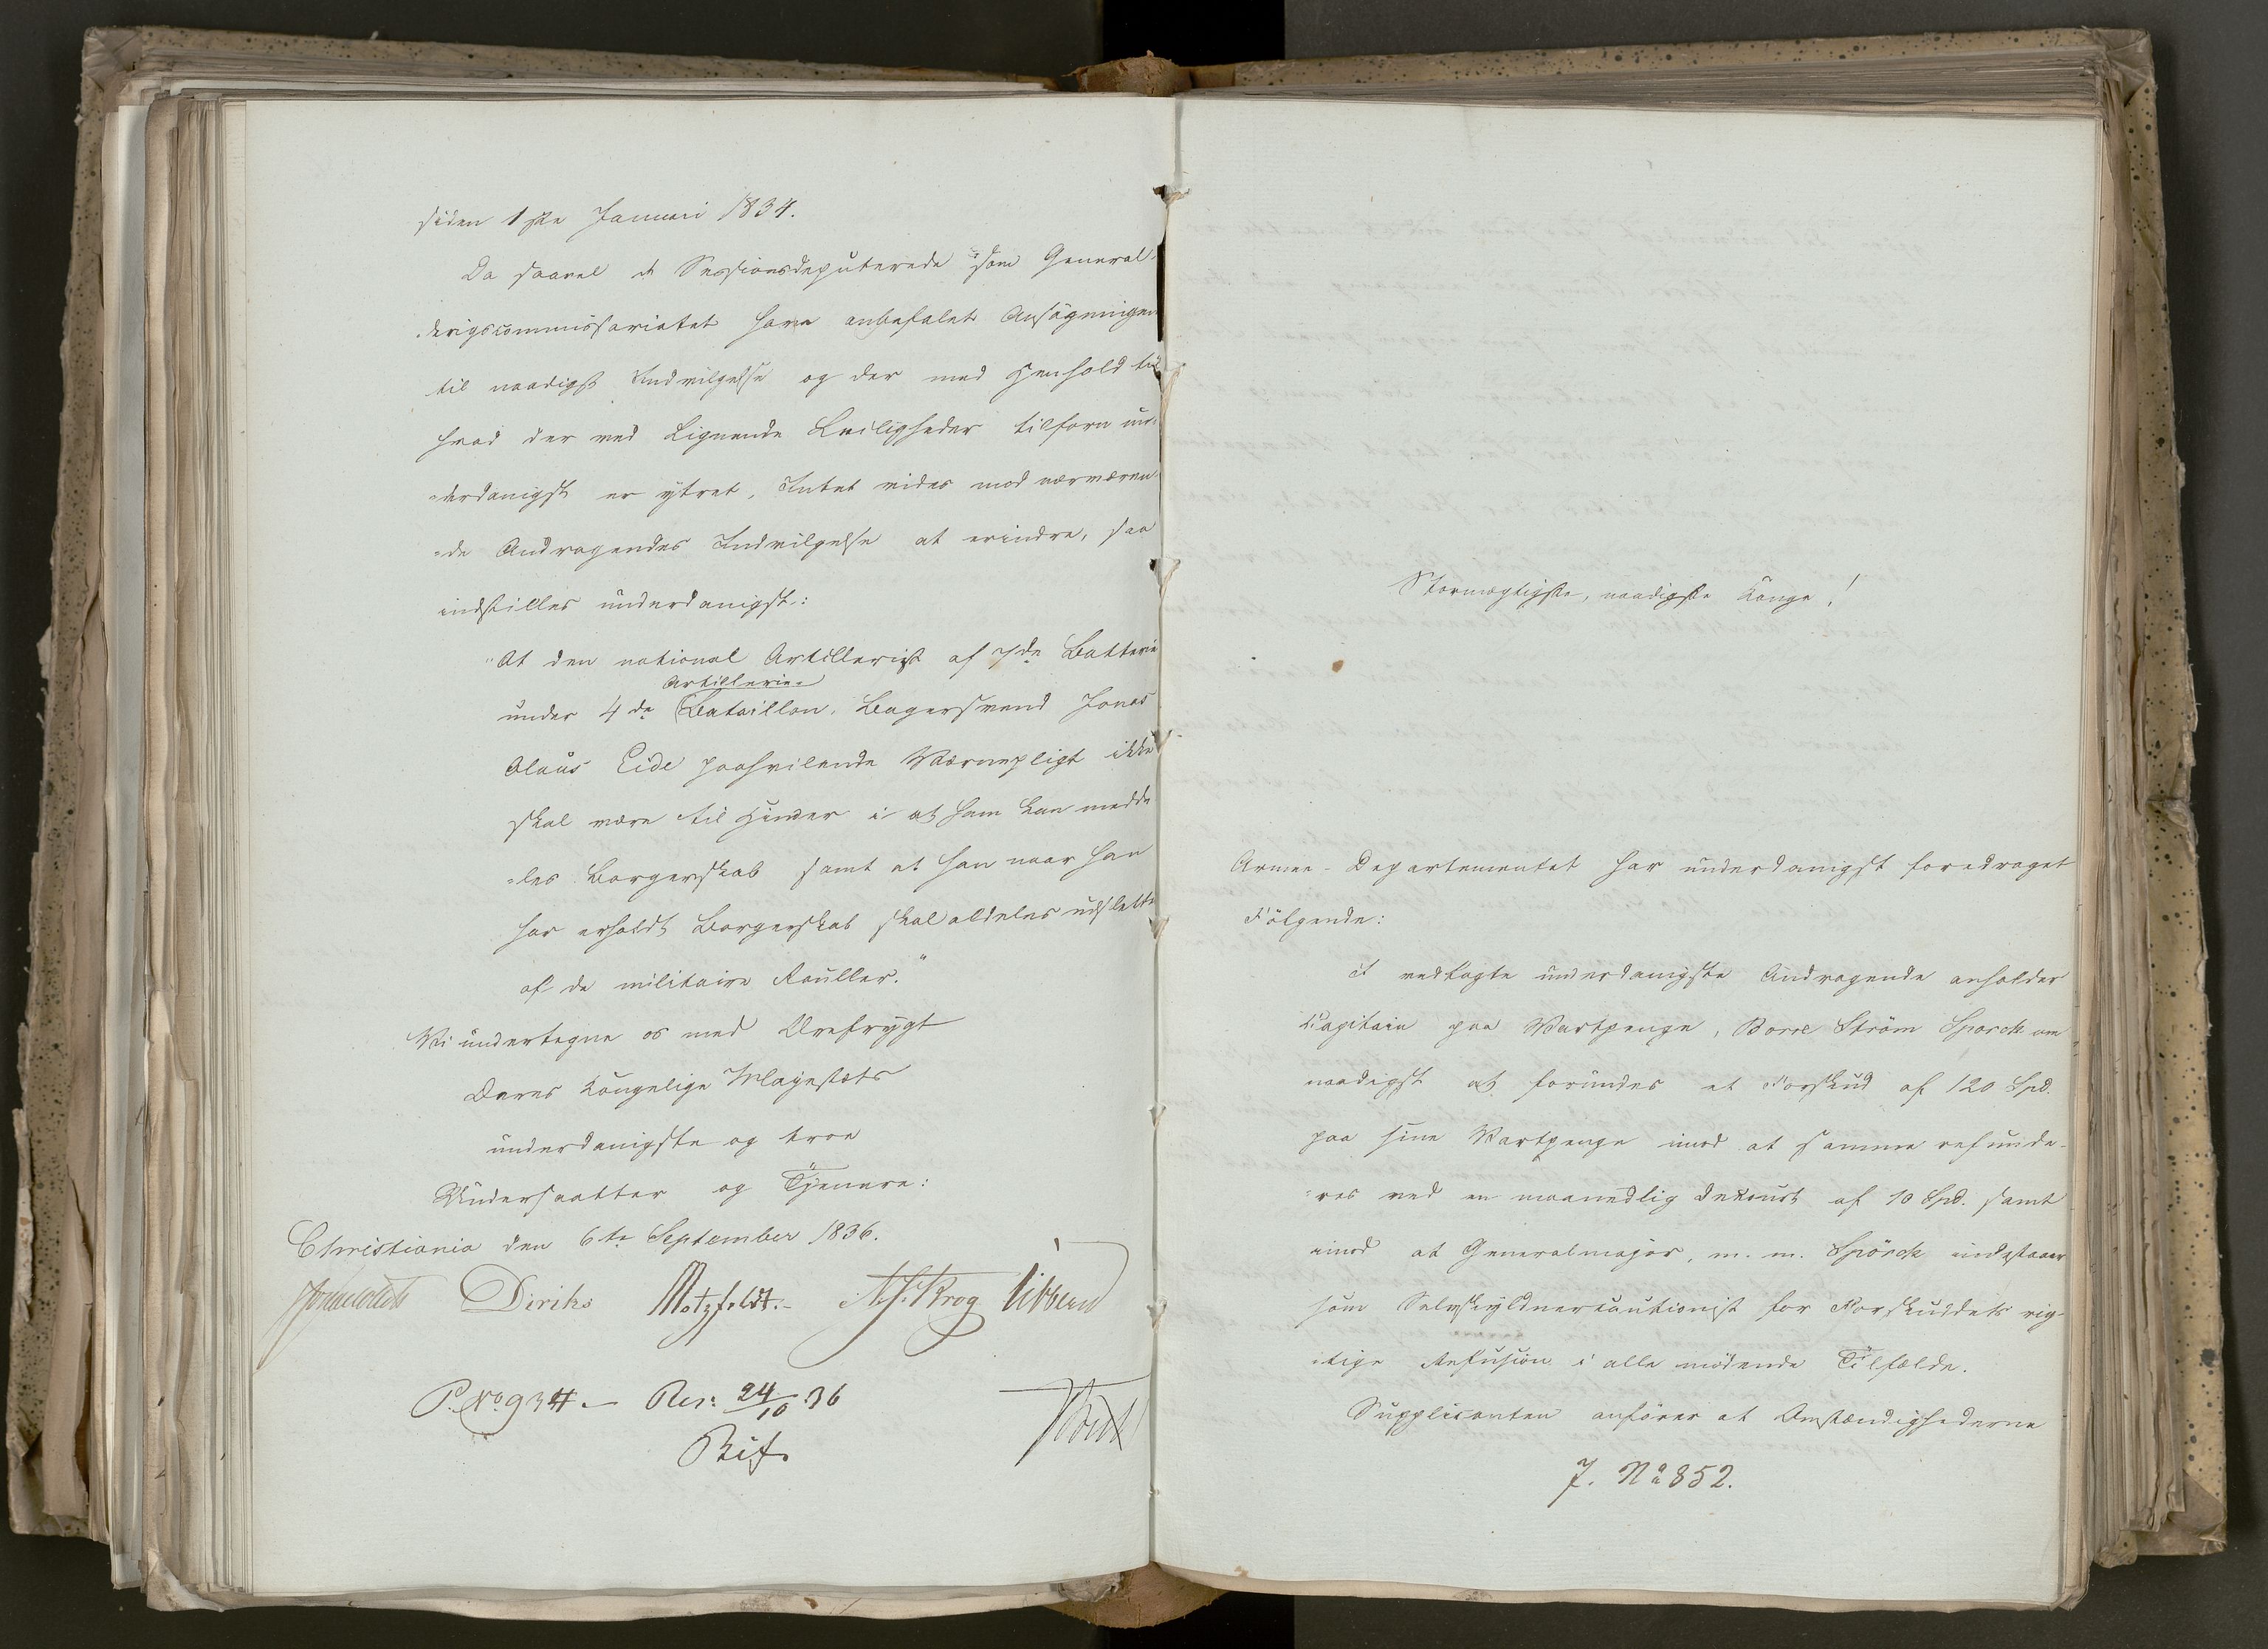 siden 1ste Januari 1834.
Da saavel de Sessionsdeputerede som General-
krigscommissariatet have anbefalet Ansögningen
til naadigst Indvilgelse og der med Henhold til
hvad der ved Lignende Leiligheder tilforn un-
-derdanigst er ytret, Intet vides mod nærværen-
-de Andragendes Indvilgelse at erindre, saa
indstilles underdanigst:
"At den national Artillerist af 7de Batterie
Artillerie-
under 4de Bataillon, Bagersvend Jonas
Olaus Eide paahvilende Værnepligt ikke
skal være til Hinder i at ham kan medde
-les Borgerskab samt at han naar han
har erholdt Borgerskab skal aldeles udslettes
af de militaire Rouller."
Vi undertegne os med Ærefrygt
Deres Kongelige Majestæts
underdanigste og troe
Undersaatter og Tjenere:
Christiania den 6te September 1836.
Diriks Motzfeldt.- Krog Vibbern
P. No. 934. — Res: 24/10 36
Bif.
Stormægtigste, naadigste Konge!
Armee-Departementet har underdanigst foredraget
Fölgende:
I vedlagte underdanigste Andragende anholder
Capitain paa Vartpenge, Borre Ström Sporck om
naadigst at forundes et Forskud af 120 Spd.
paa sine Vartpenge imod at samme refunde-
-res ved en maanedlig Decourt af 10 Spd. samt
imod at Generalmajor, m. m. Spörck indestaaer
som Selvskyldnercautionist for Forskuddets rig-
-tige Refusion i alle mödende Tilfælde.
Supplicanten anförer at Omstændighederne
J. No 852.